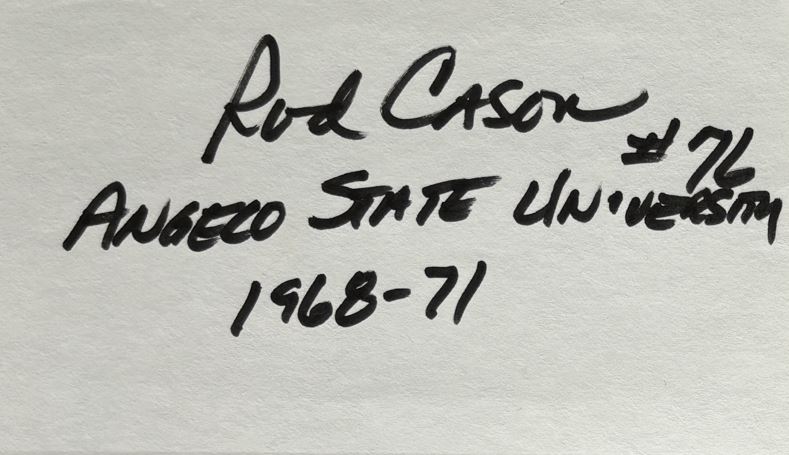 Rod Cason
#76
Angelo State University
1968-71